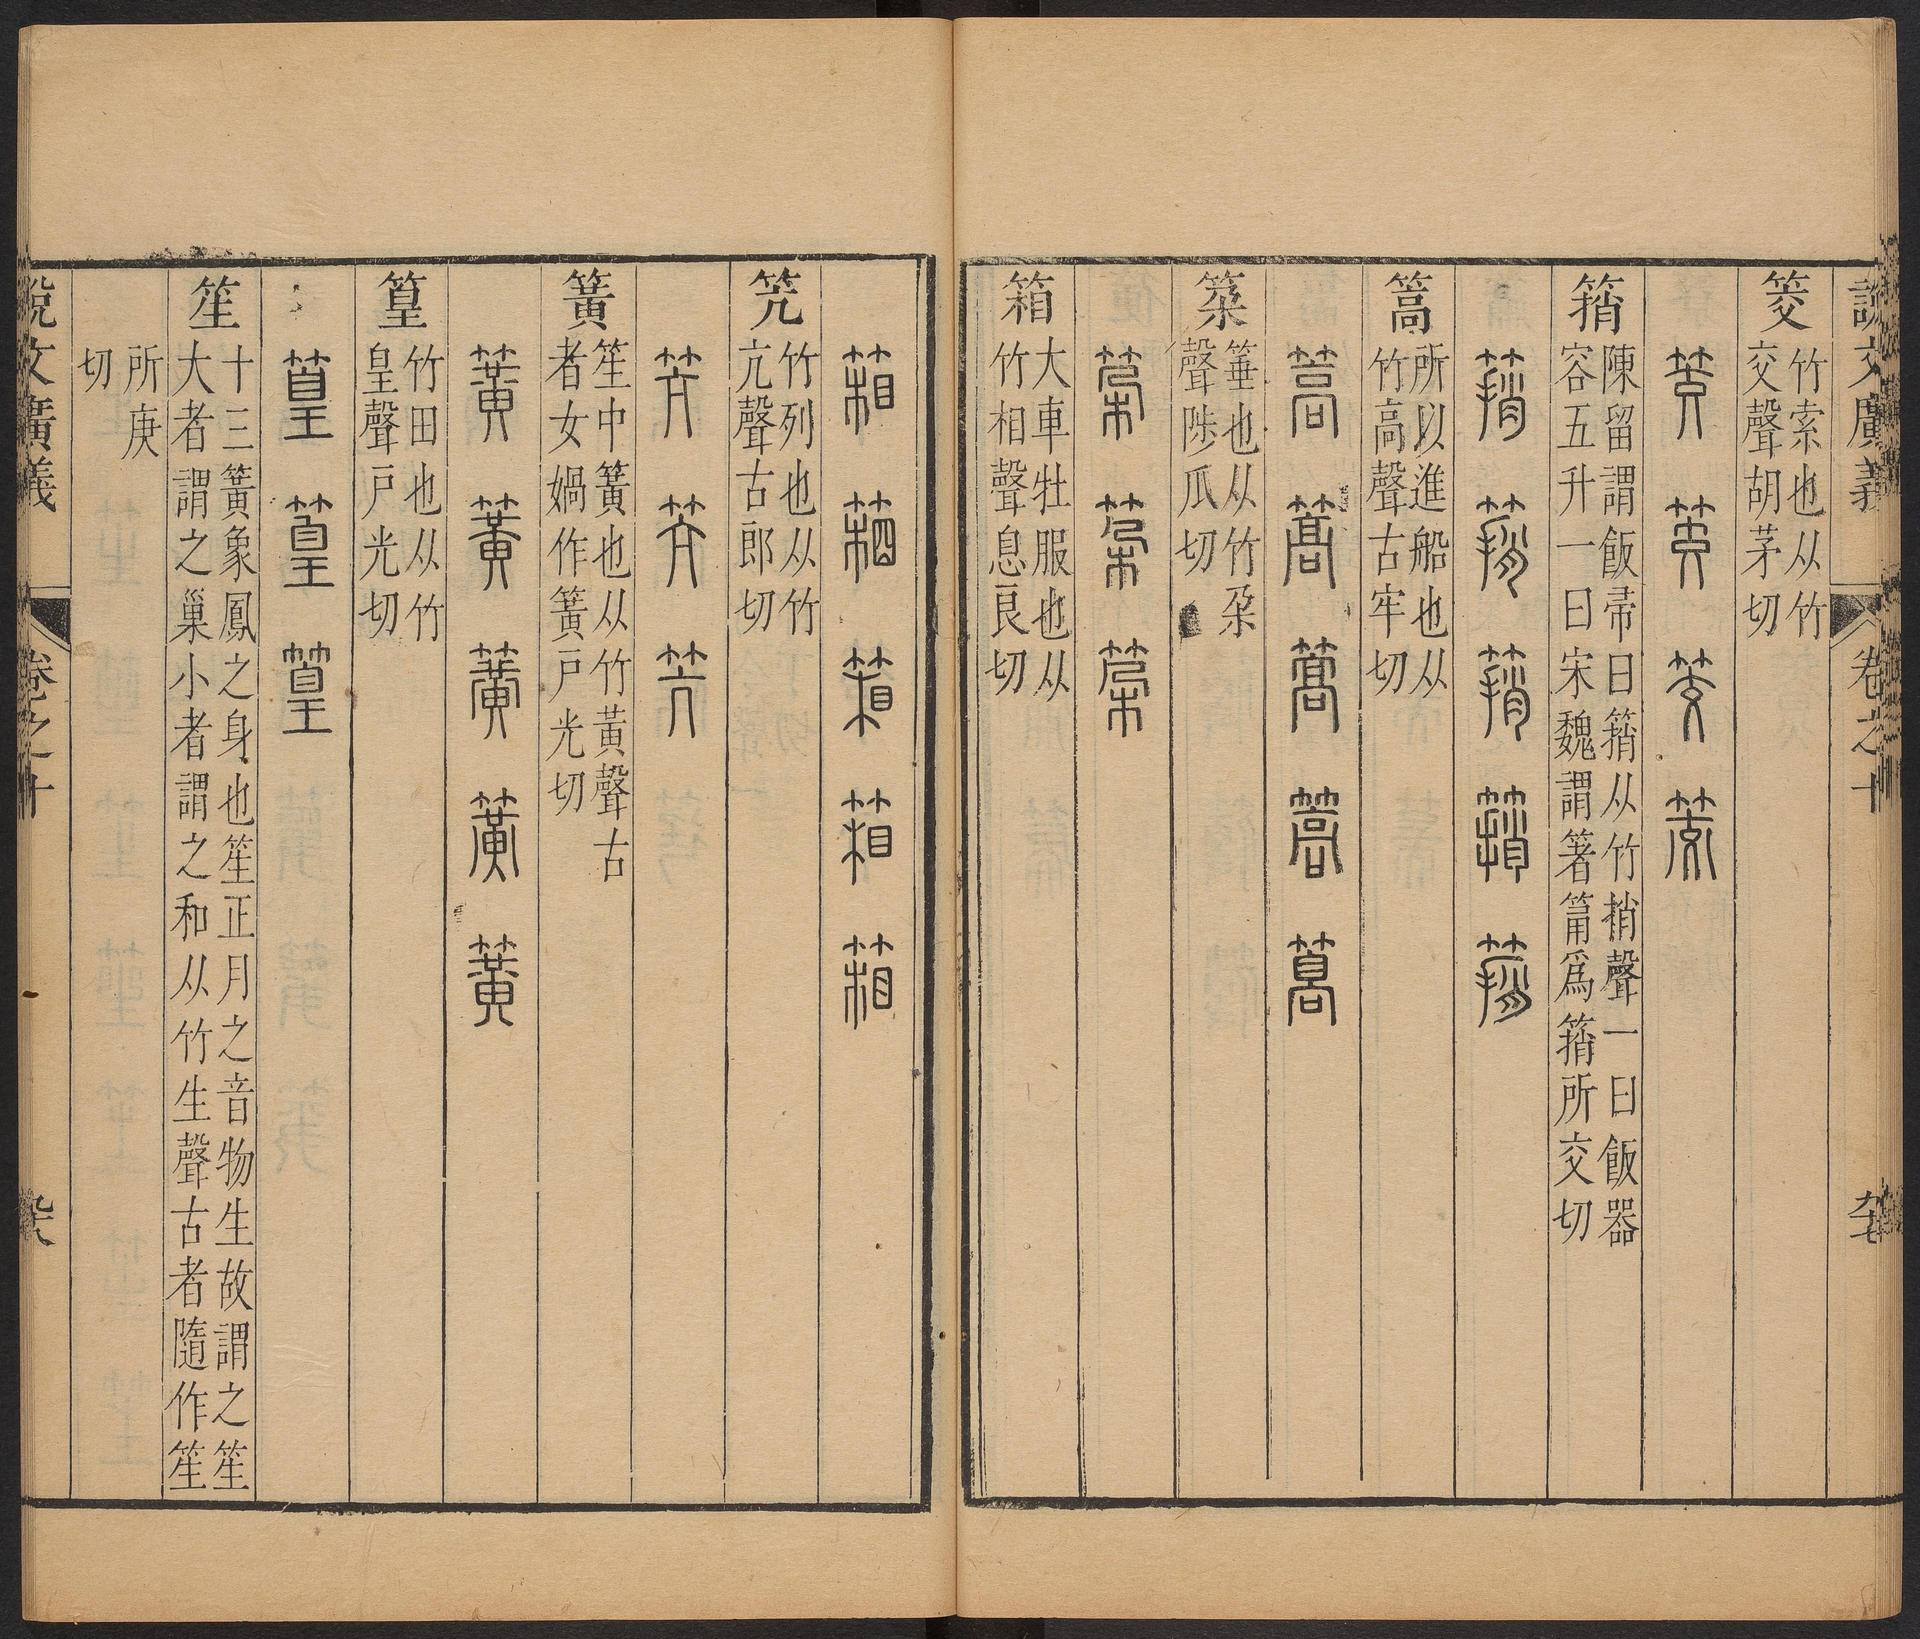 說文廣義 卷之十
筊 竹索也从竹
交聲胡茅切
䈰 陳留謂飯帚曰䈰从竹捎聲一曰飯器
容五升一曰宋魏謂箸筩爲䈰所交切
篙 所以進船也从
竹高聲古牢切
築 箠也从竹朶
聲陟瓜切
箱 大車牡服也从
竹相聲息良切
笐 竹列也从竹
亢聲古郎切
簧 笙中簧也从竹黃聲古
者女媧作簧戸光切
篁 竹田也从竹
皇聲戸光切
笙 十三簧象鳳之身也笙正月之音物生故謂之笙
大者謂之巢小者謂之和从竹生聲古者隨作笙
所庚
切
說文廣義 卷之十